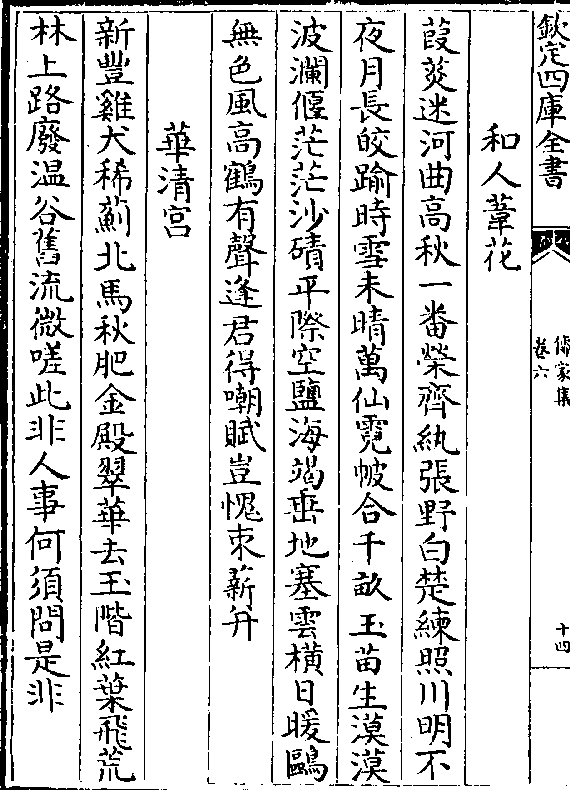 欽定四庫全書
傳家集
卷六
十四
和人葦花
葭菼迷河曲高秋一番榮齊紈張野白楚練照川明不
夜月長皎踰時雪未晴萬仙霓帔合千畝玉苗生漠漠
波瀾偃茫茫沙磧平際空鹽海竭垂地塞雲橫日暖鷗
無色風高鶴有聲逢君得嘲賦豈愧束薪并
華清宮
新豐雞犬稀薊北馬秋肥金殿翠華去玉階紅葉飛荒
林上路廢温谷舊流微嗟此非人事何須問是非